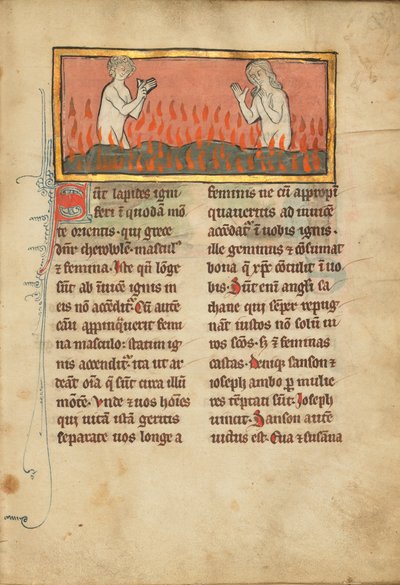 Sūt lapides igni
feri ī quodā mō
te orientis · qui grece
dn̄r chirobolē · mascul9
⁊ femina · Inde qn̄ lōge
sūt ab īuicē ignis in
eis nō accēdit᷑ · Cū autē
casu appinq̄uerit femi
na masculo : statim ig
nis accendit᷑ · ita ut ar
deāt oīa q̄ sūt circa illū
mōtē · Vnde ⁊ uos hoīes
qui uitā istā geritis
separate uos longe a
feminis ne cū appropī
quaueritis ad īuicē
accēdat᷑ ī uobis ignis ·
ille geminus ⁊ cōsumat
bona que xp̄c cōtulit ī uo
bis · Sūt enī angl̄i sa
thane qui semp̄ repug
nāt iustos nō solū ui
ros scōs · s̄ ⁊ feminas
castas · Deniq̄ sanson ⁊
ioseph ambo p̄ mulie
res tēptati sūt · Joseph
uincit · Sanson autē
uictus est · Eua ⁊ susana